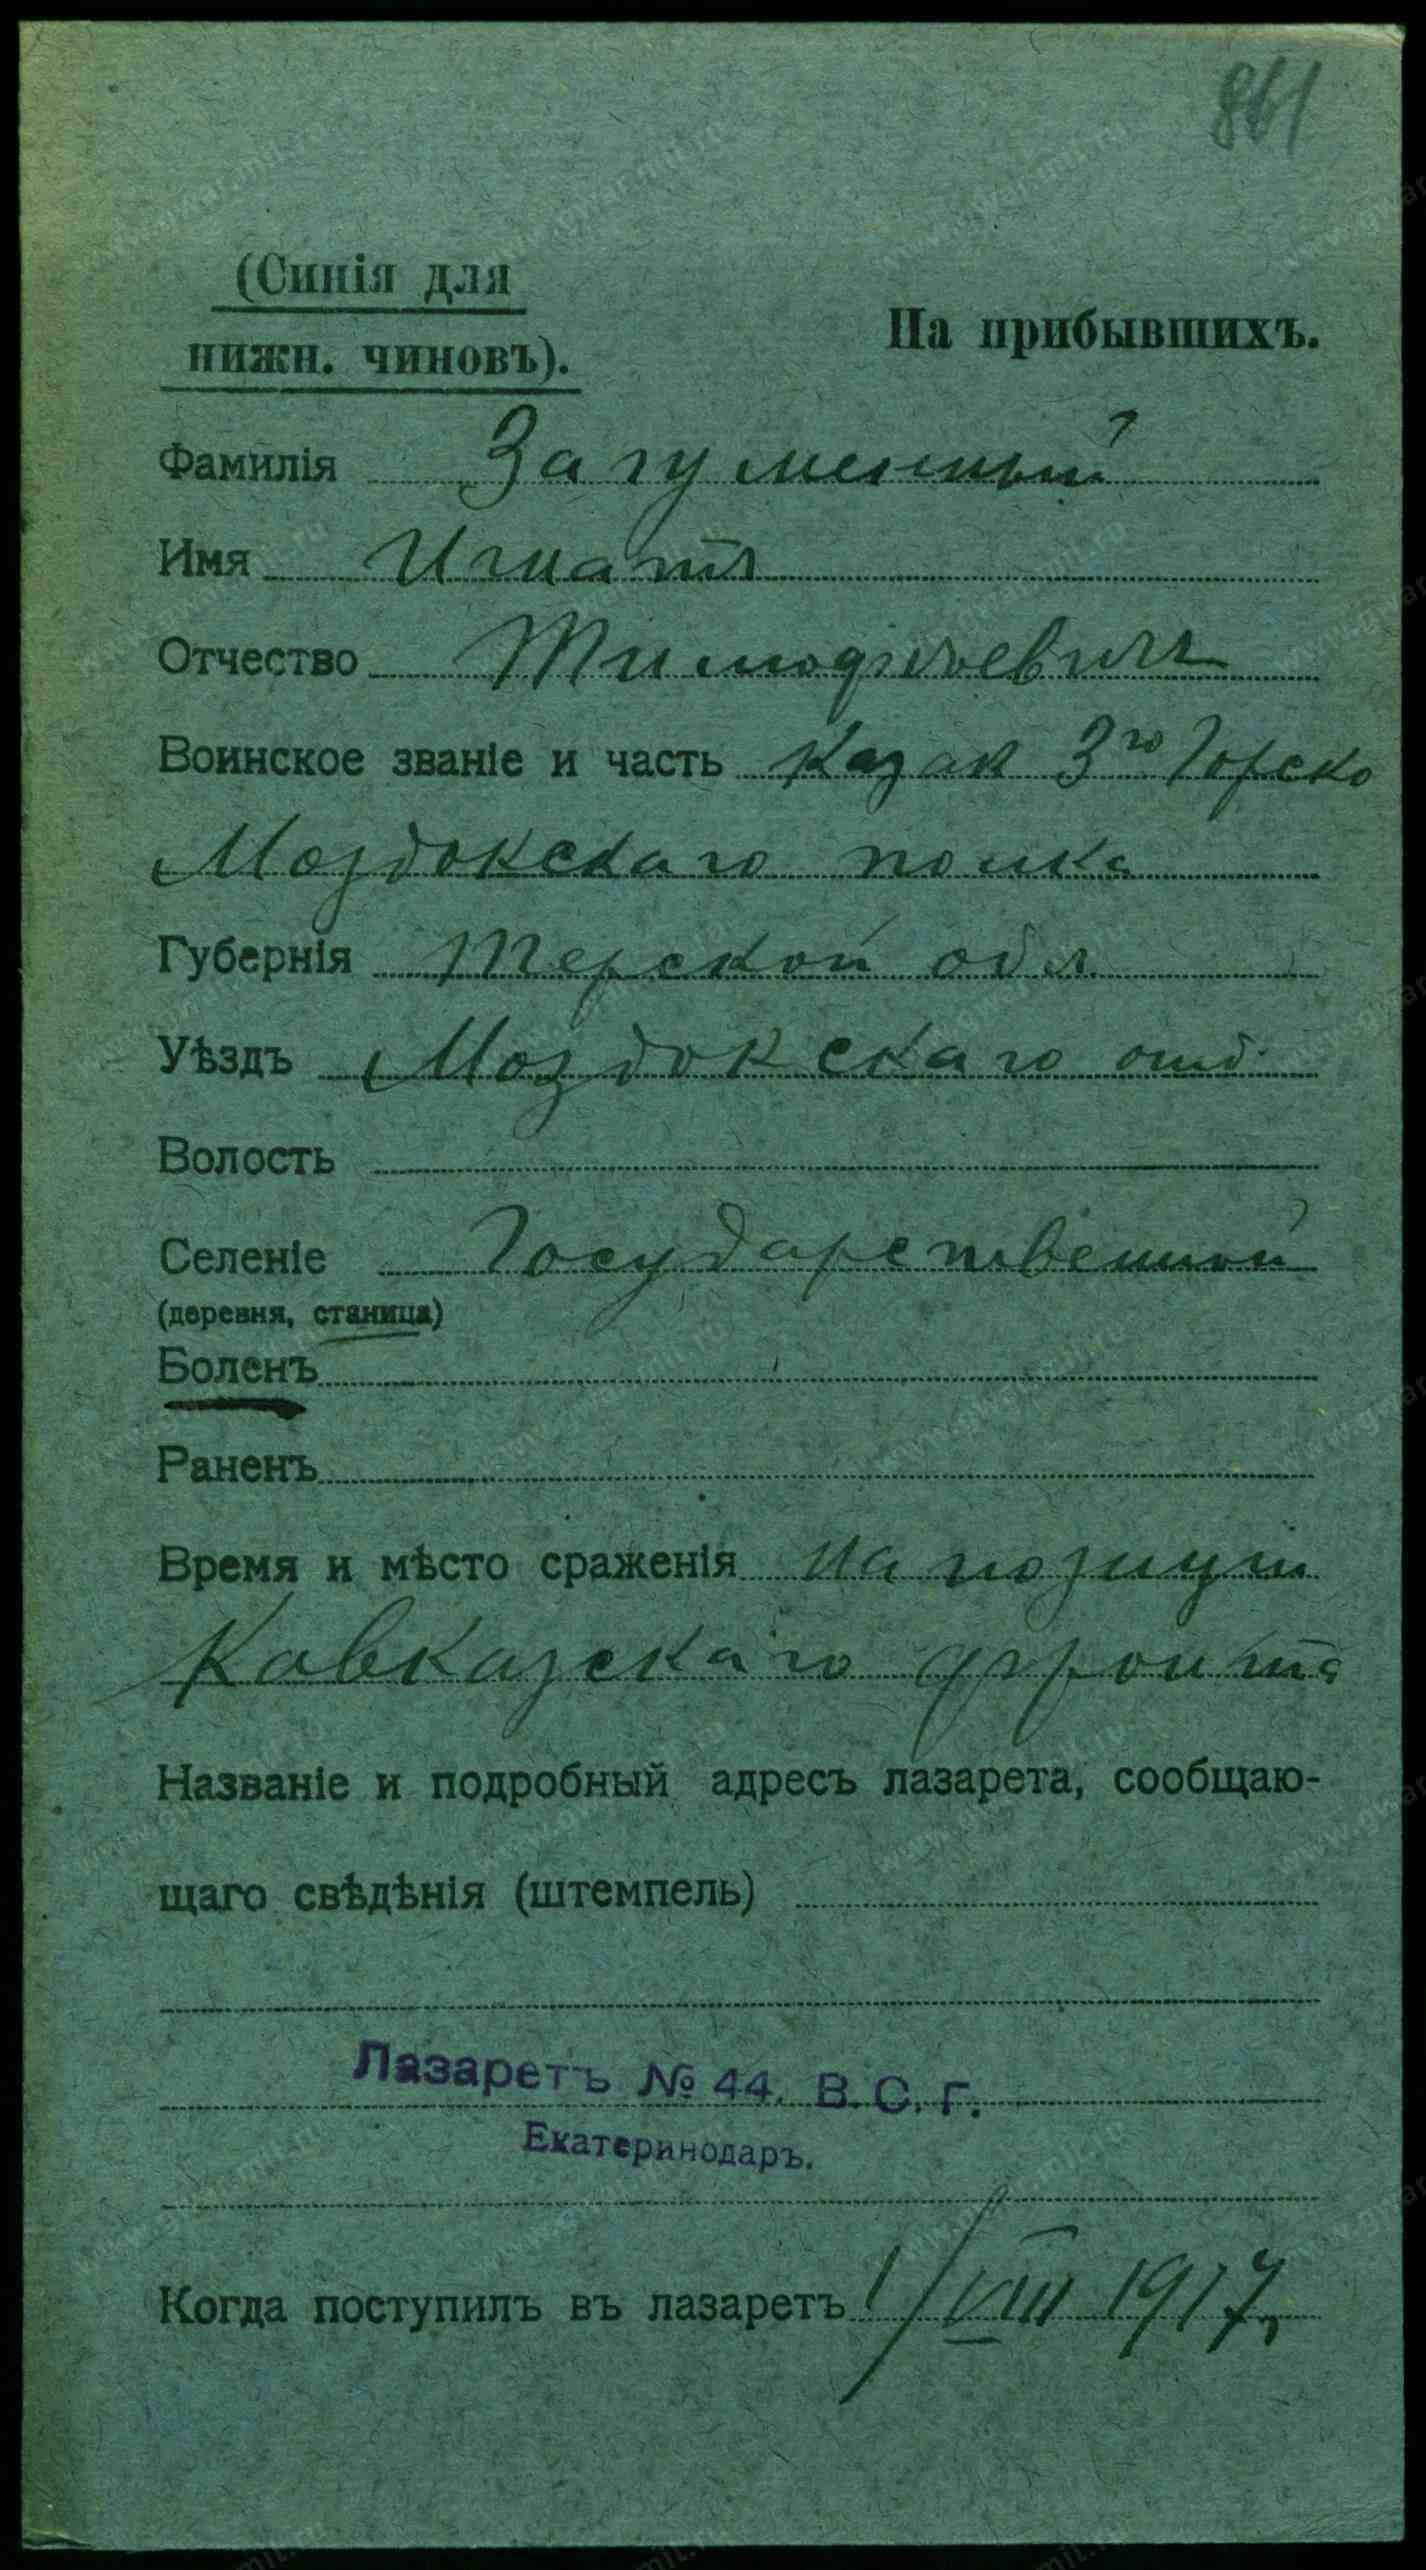 861
(Синія для
нижн. чиновъ).
На прибывшихъ.
Фамилія Загуменный
Имя Игнатъ
Отчество Тимофѣевичъ
Воинское званіе и часть Казак 3го Горско
Моздокскаго полка
Губернія Терской обл
Уѣздъ Моздокскаго отд.
Волость
Селеніе Государственной
(деревня, станица)
Боленъ
Раненъ
Время и мѣсто сраженія на позиціи
Кавказскаго фронта
Названіе и подробный адресъ лазарета, сообщаю-
щаго свѣдѣнія (штемпель)
Лазаретъ № 44. В. С. Г.
Екатеринодаръ.
Когда поступилъ въ лазаретъ 1/VIII 1917 г.